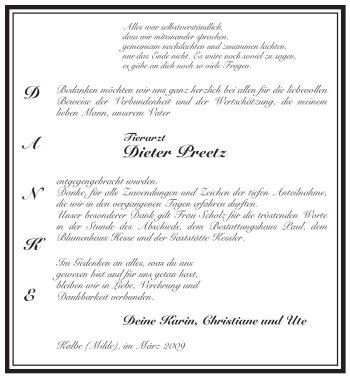 Alles war selbstverständlich,
dass wir miteinander sprachen,
gemeinsam nachdachten und zusammen lachten,
nur das Ende nicht. Es wäre noch soviel zu sagen,
es gäbe an dich noch so viele Fragen.
D Bedanken möchten wir uns ganz herzlich bei allen für die liebevollen
Beweise der Verbundenheit und der Wertschätzung, die meinem
lieben Mann, unserem Vater
A Tierarzt
Dieter Preetz
entgegengebracht wurden.
N Danke, für alle Zuwendungen und Zeichen der tiefen Anteilnahme,
die wir in den vergangenen Tagen erfahren durften.
Unser besonderer Dank gilt Frau Scholz für die tröstenden Worte
in der Stunde des Abschieds, dem Bestattungshaus Paul, dem
K Blumenhaus Hesse und der Gaststätte Kessler.
Im Gedenken an alles, was du uns
gewesen bist und für uns getan hast,
bleiben wir in Liebe, Verehrung und
E Dankbarkeit verbunden.
Deine Karin, Christiane und Ute
Kalbe (Milde), im März 2009